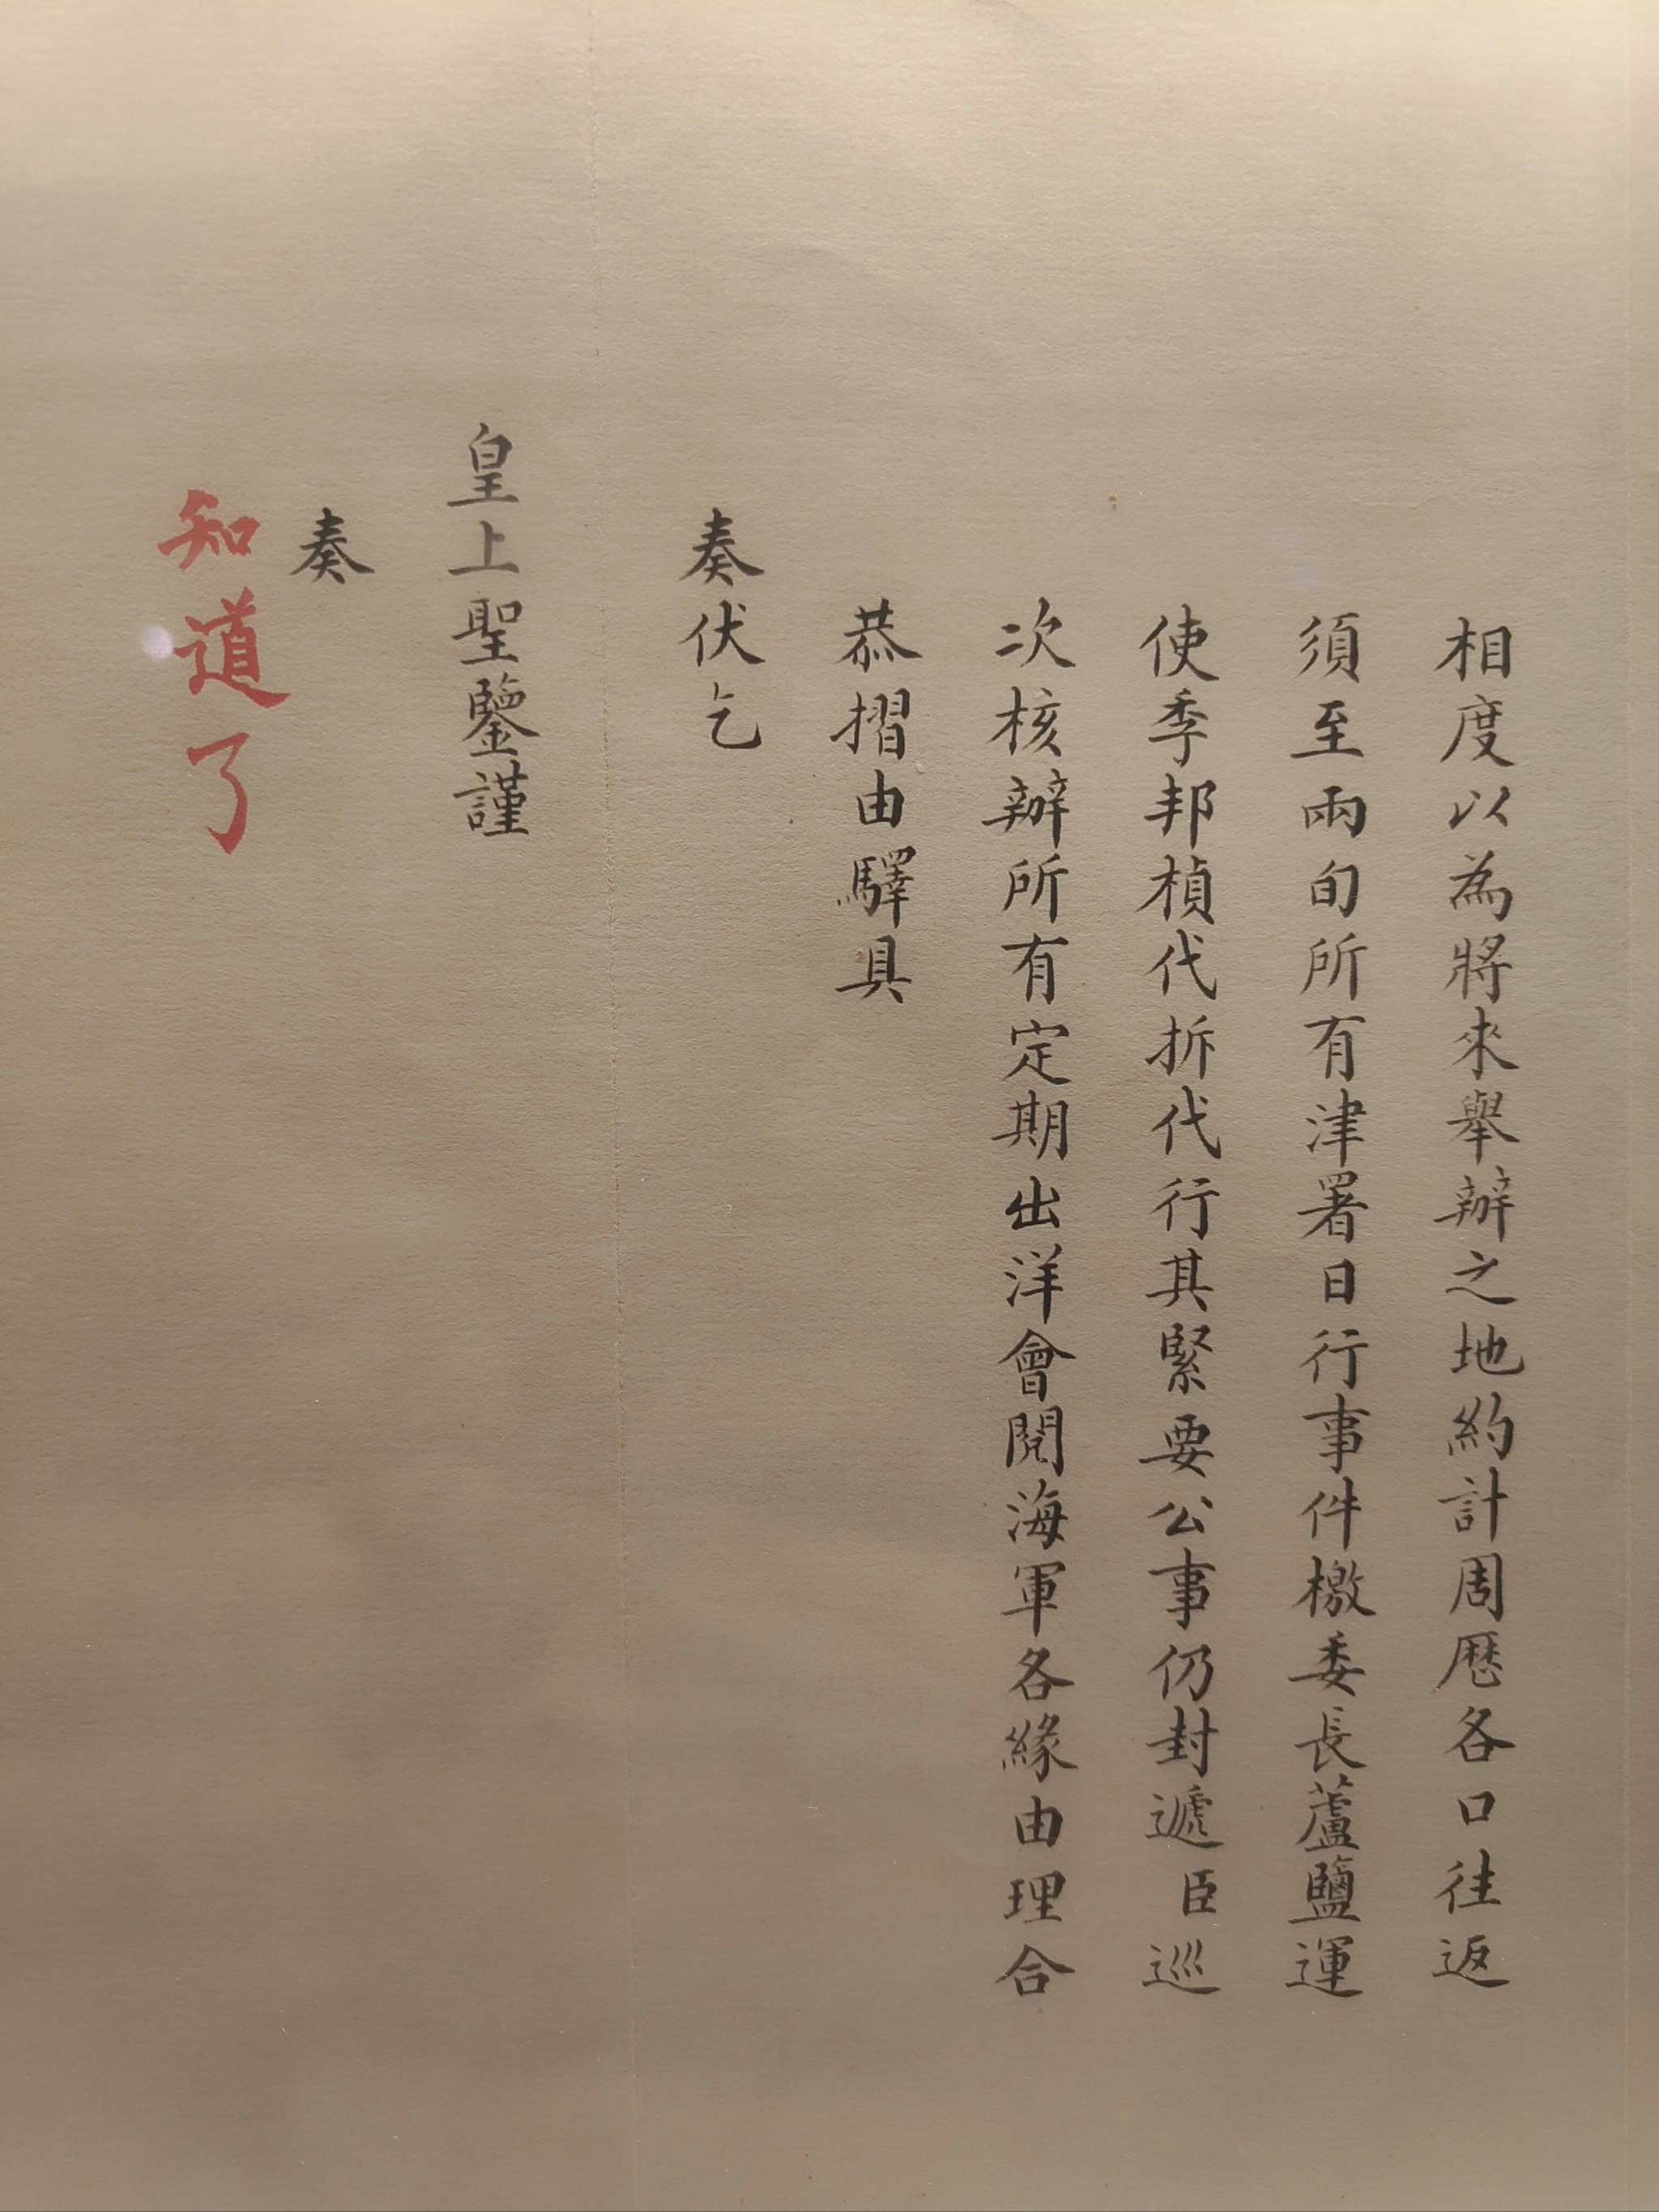 相度以為將來舉辦之地約計周歷各口往返
須至兩旬所有津署日行事件檄委長蘆鹽運
使季邦楨代拆代行其緊要公事仍封遞臣巡
次核辦所有定期出洋會閱海軍各緣由理合
恭摺由驛具
奏伏乞
皇上聖鑒謹
奏
知道了